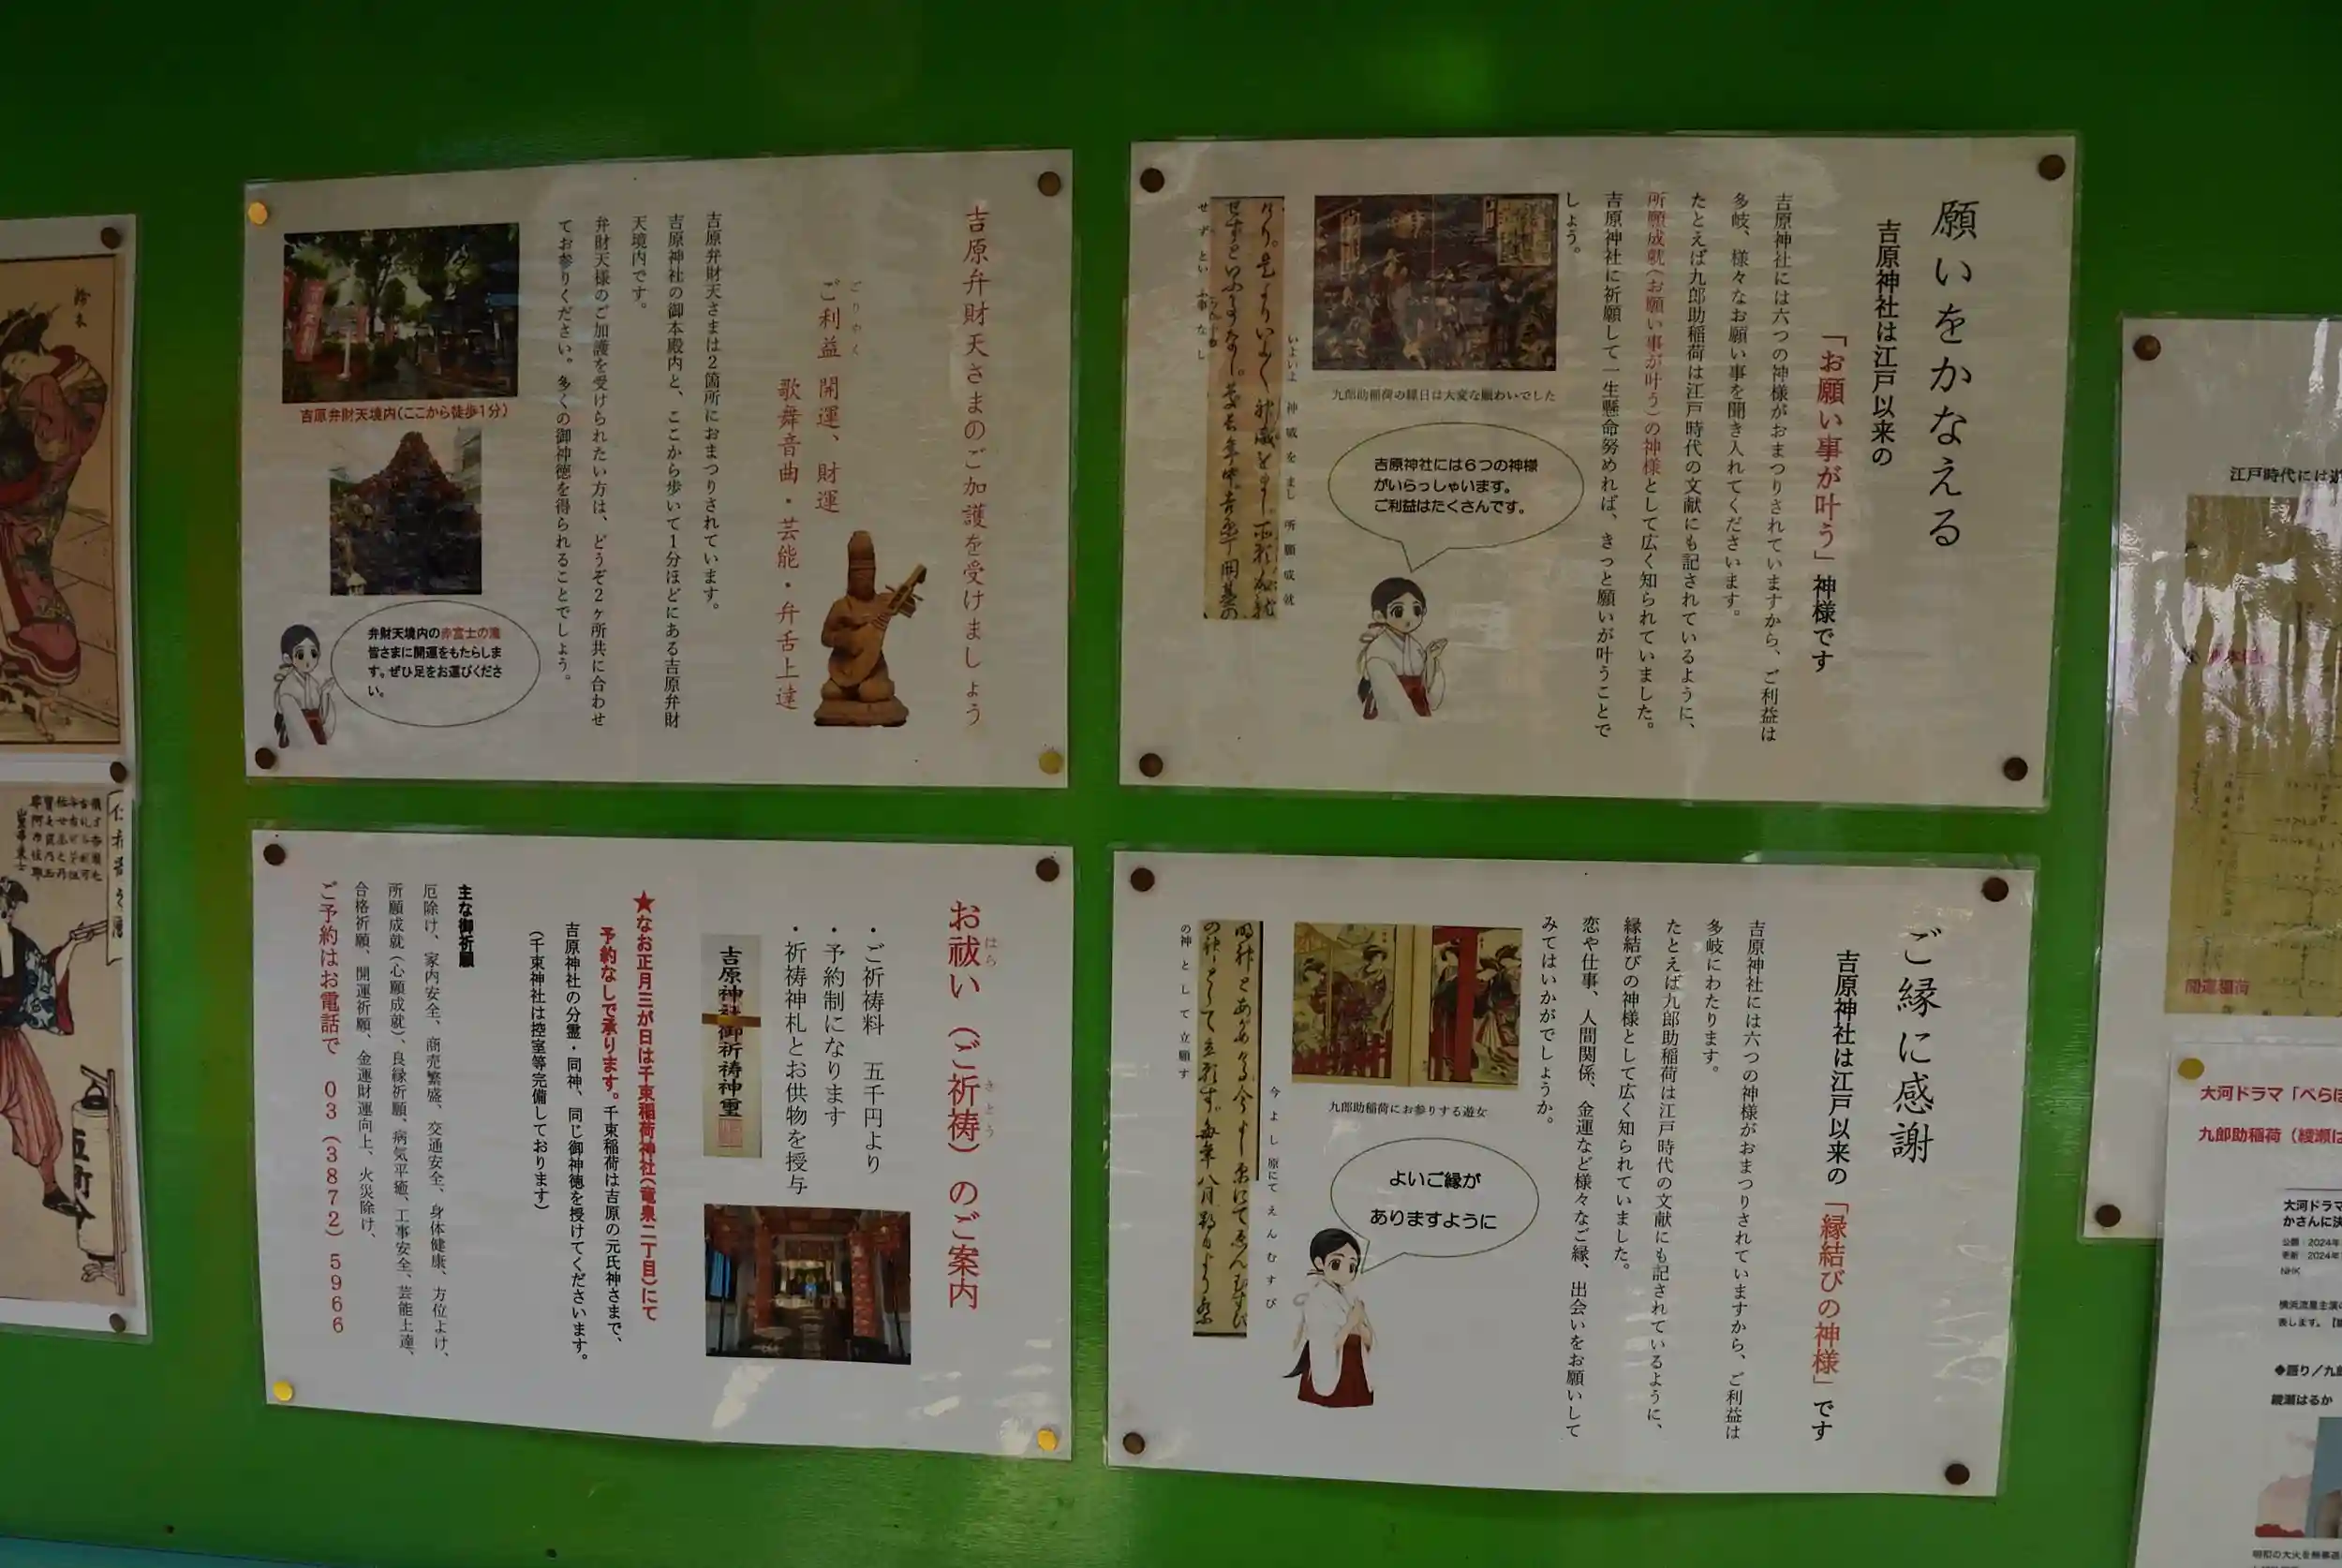 願いをかなえる
吉原神社は江戸以来の
「お願い事が叶う」神様です
吉原神社には六つの神様がおまつりされていますから、ご利益は
多岐、様々なお願い事を聞き入れてくださいます。
たとえば九郎助稲荷は江戸時代の文献にも記されているように、
所願成就(お願い事が叶う)の神様として広く知られていました。
吉原神社に祈願して一生懸命努めれば、きっと願いが叶うことで
しょう。
九郎助稲荷の縁日は大変な賑わいでした
吉原神社には6つの神様
がいらっしゃいます。
ご利益はたくさんです。
いよいよ神威をまし所願成就
せずといふ事なし
吉原弁財天さまのご加護を受けましょう
ごりやく
ご利益 開運、財運
歌舞音曲・芸能・弁舌上達
吉原弁財天さまは2箇所におまつりされています。
吉原神社の御本殿内と、ここから歩いて1分ほどにある吉原弁財
天境内です。
弁財天様のご加護を受けられたい方は、どうぞ2ヶ所共に合わせ
てお参りください。多くの御神徳を得られることでしょう。
吉原弁財天境内(ここから徒歩1分)
弁財天境内の赤富士の滝
皆さまに開運をもたらしま
す。ぜひ足をお運びくださ
い。
ご縁に感謝
吉原神社は江戸以来の「縁結びの神様」です
吉原神社には六つの神様がおまつりされていますから、ご利益は
多岐にわたります。
たとえば九郎助稲荷は江戸時代の文献にも記されているように、
縁結びの神様として広く知られていました。
恋や仕事、人間関係、金運など様々なご縁、出会いをお願いして
みてはいかがでしょうか。
九郎助稲荷にお参りする遊女
よいご縁が
ありますように
今よし原にてえんむすび
の神として立願す
お祓い(ご祈祷)のご案内
はら
きとう
・ご祈祷料 五千円より
・予約制になります
・祈祷神札とお供物を授与
吉原神社御祈祷神璽
★なお正月三が日は千束稲荷神社(竜泉二丁目)にて
予約なしで承ります。千束稲荷は吉原の元氏神さまで、
吉原神社の分霊・同神、同じ御神徳を授けてくださいます。
(千束神社は控室等完備しております)
主な御祈願
厄除け、家内安全、商売繁盛、交通安全、身体健康、方位よけ、
所願成就(心願成就)、良縁祈願、病気平癒、工事安全、芸能上達、
合格祈願、開運祈願、金運財運向上、火災除け、
ご予約はお電話で 03(3872)5966
江戸時代には遊
開運稲荷
大河ドラマ「べらぼ
九郎助稲荷(綾瀬は
大河ドラマ
かさんに決
公開:2024年
更新:2024年
NHK
横浜流星主演の
表します。
◆語り/九郎
綾瀬はるか
明和の大火を